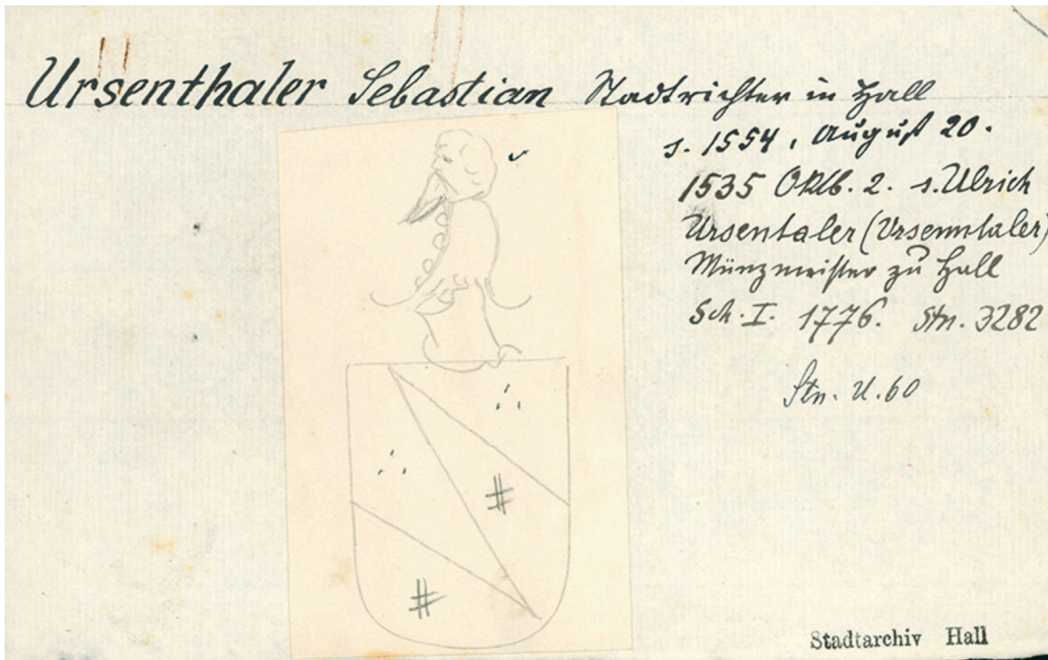 Ursenthaler Sebastian Stadtrichter in Hall
s. 1554, August 20.
1535 Oktb. 2. s. Ulrich
Ursentaler (Ursenntaler)
Münzmeister zu Hall
Sch. I. 1776. Stn. 3282
Stn. U. 60
Stadtarchiv Hall